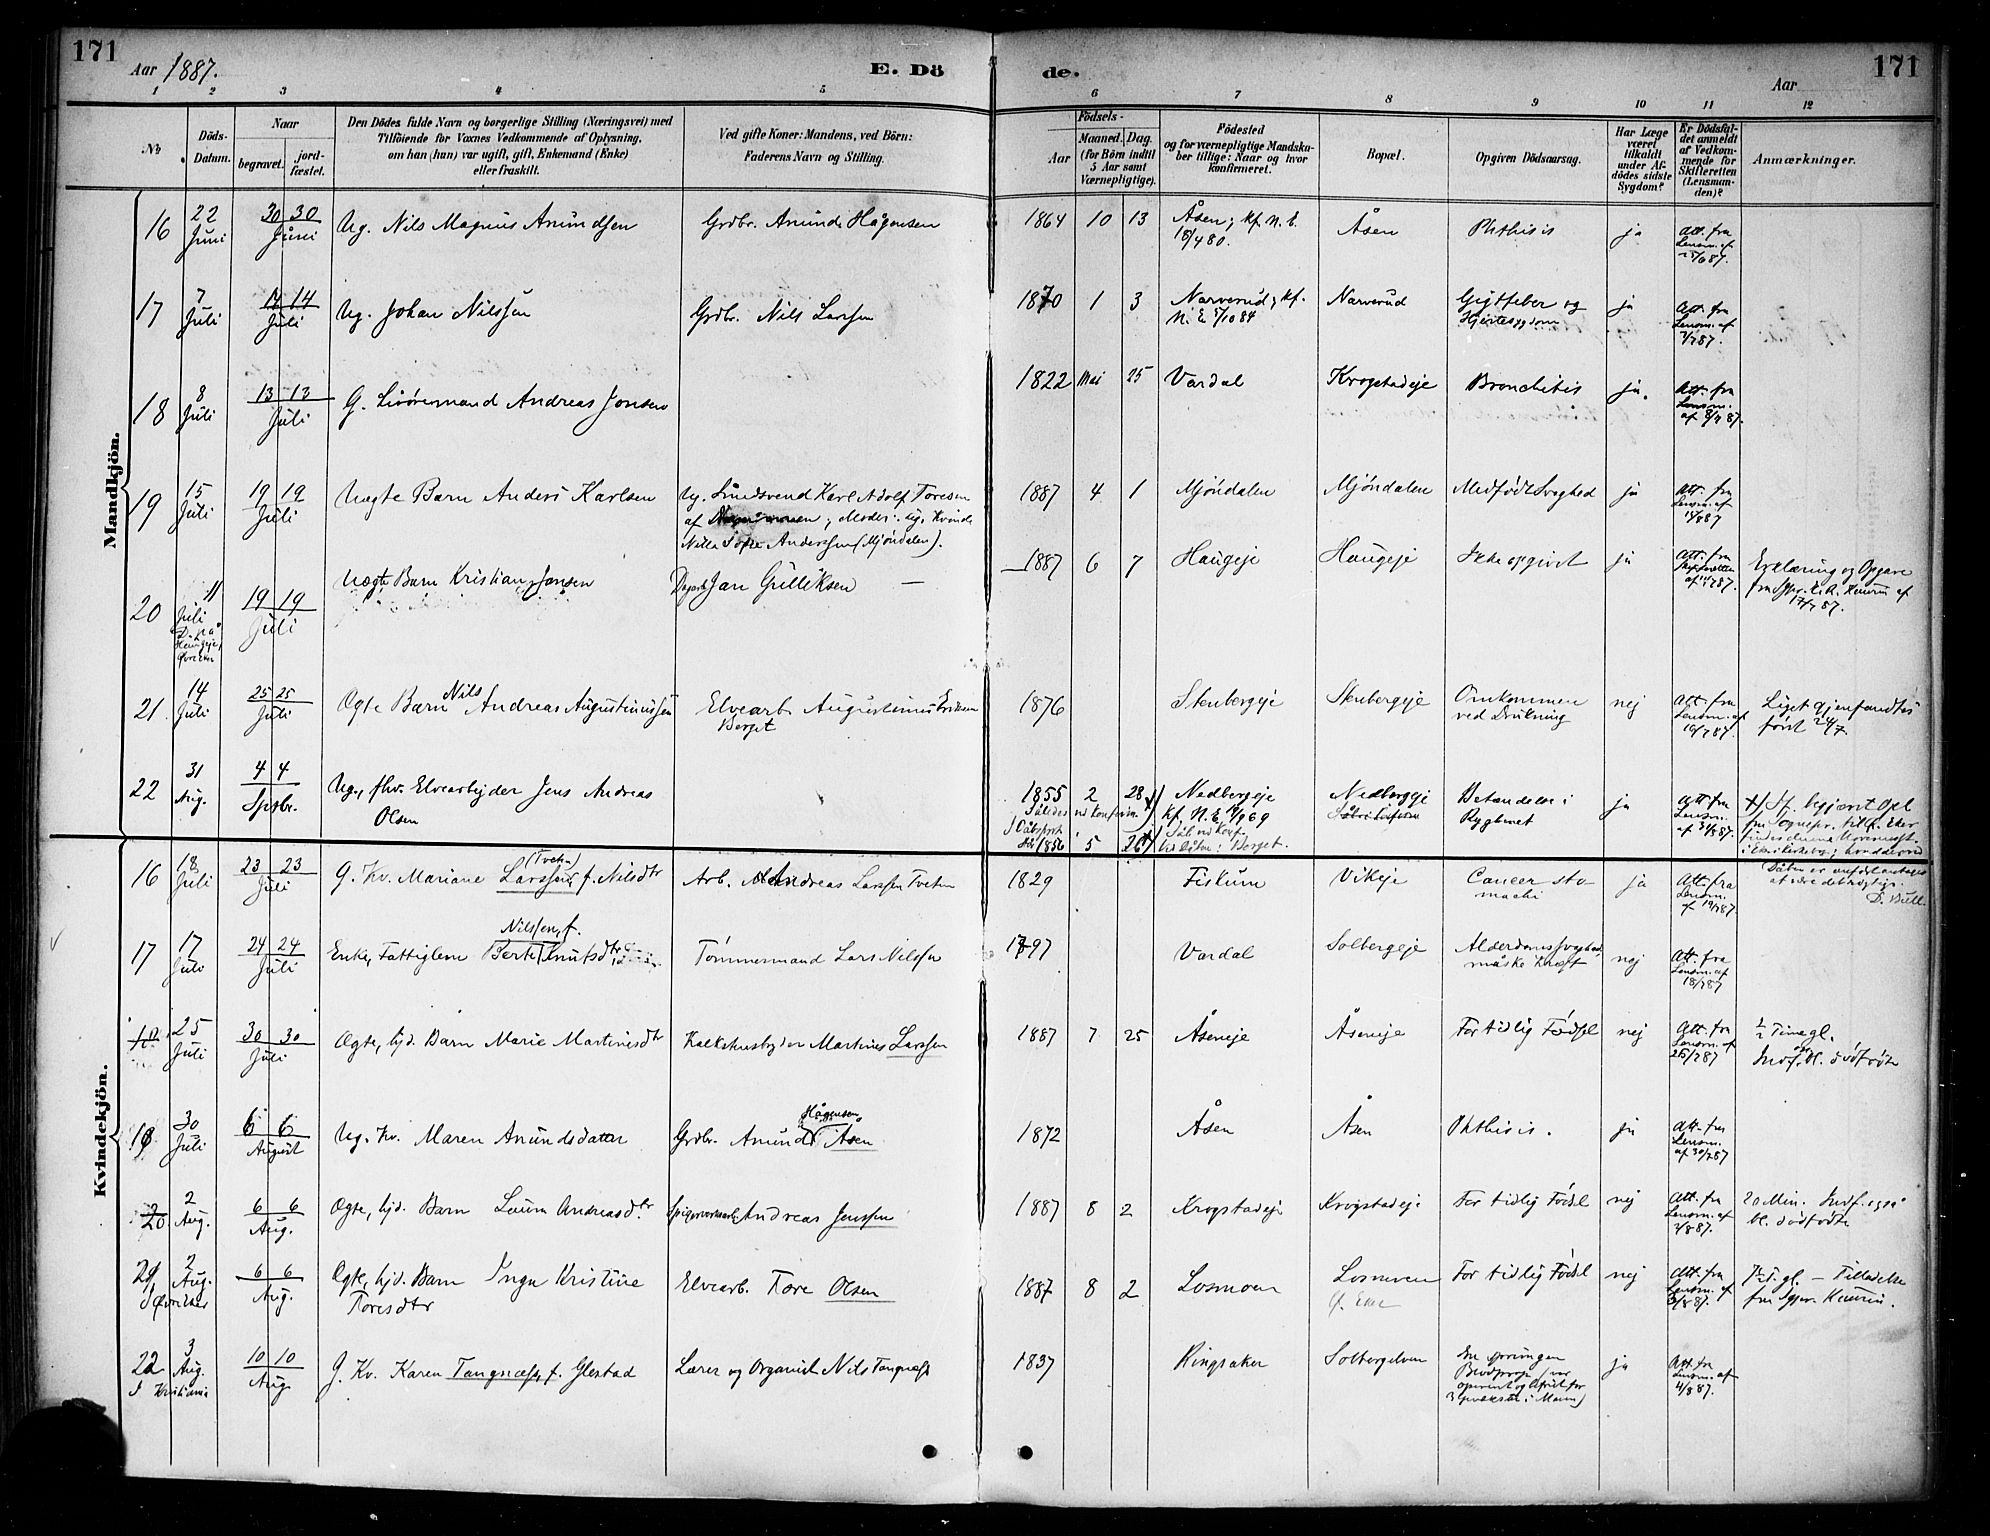 171
Aar 1887.
E. Dö
de.
Aar
171
1 2 3 4 5 6 7 8 9 10 11 12
№
Döds-
Datum.
Naar
begravet.
jord-
fæstet.
Den Dödes fulde Navn og borgerlige Stilling (Næringsvei) med
Tilföiende for Voxnes Vedkommende af Oplysning,
om han (hun) var ugift, gift, Enkemand (Enke)
eller fraskilt.
Ved gifte Koner: Mandens, ved Börn:
Faderens Navn og Stilling.
Födsels-
Aar
Maaned.
Dag.
(for Börn indtil
5 Aar samt
Værnepligtige).
Födested
og for værnepligtige Mandsku-
ber tillige: Naar og hvor
konfirmeret.
Bopæl.
Opgiven Dödsaarsag.
Har Læge
været
tilkaldt
under Af-
dödes sidste
Sygdom?
Er Dödsfal-
det anmeldt
af Vedkom-
mende for
Skifteretten
(Lensman-
den)?
Anmærkninger.
Mandkjön.
16 22 Juni 30 30 Juni Ug. Nils Magnus Amundsen Grdbr. Amund Hågensen 1864 10 13 Åsen; kf. N. E. 18/4 80. Åsen Phthisis ja Att. fra Lensm. af 25/6 87.
17 7 Juli 14 14 Juli Ug. Johan Nilssen Grdbr. Nils Larssen 1870 1 3 Narverud; kf. N. E. 5/10 84 Narverud Gigtfeber og Hjertesygdom ja Att. fra Lensm. af 7/7 87.
18 8 Juli 13 13 Juli G. Andreas Jonsen 1822 Mai 25 Vardal Krogstadeje Bronchitis ja. Att. fra Lensm. af 8/7 87.
19 15 Juli 19 19 Juli Uægte Barn Anders Karlsen Ug. Karl Adolf Toresen
af ; Moder: ug. Kvinde
Anderssen (Mjöndalen). 1887 4 1 Mjöndalen Mjöndalen Medfödt Svaghed ja Att. fra Lensm. af
20 11 Juli D. på Haugeje, Øvreeker 19 19 Juli Uægte Barn Kristian Jansen Jan Gulliksen — 1887 6 7 Haugeje Haugeje Ikke opgivet ja Att. fra Erklæring og Opgave
17/7 87.
21. 14 Juli 25 25 Juli Ægte Barn Nils Andreas Augustinussen Elvearb. Augustinus Eriksen
Berget 1876 Stenbergeje Stenbergeje Omkommen
ved Drukning nej Att. fra Lensm. af 19/7 87. Liget gjenfandtes
først 24/7.
22 31 Aug. 4 4 Sptbr. Ug., fhv. Elvearbejder Jens Andreas
Olsen 1855 2 28 Nedbergeje
kf. N. E. Nedbergeje Betændelse i
Rygbenet ja Att. fra Lensm. af
1856 5 26 Berget.
Kvindekjön.
16 18 Juli 23 23 Juli G. Kv. Mariane Larssen (Tveten) f. Nilsdtr Arb. Andreas Larssen Tveten 1829 Fiskum Vikeje Cancer sto-
machi ja Att. fra Lensm. af 19/7 87. D. Bull
17 17 Juli 24 24 Juli Enke, Fattiglem Berte Nilssen, f. Knutsdtr Tømmermand Lars Nilssen 1797 Vardal Solbergeje Alderdomssvaghed
måske Kræft nej Att. fra Lensm. af 18/7 87
18 25 Juli 30 30 Juli Ægte, hjd. Barn Marie Martinsdtr Martines Larssen 1887 7 25 Åseneje Åseneje For tidlig Födsel nej Att. fra Lensm. af 26/7 87 1/2 Time gl.
Indf. bl. dödfödte
19 30 Juli 6 6 August Ug. Kv. Maren Amundsdatter Grdbr. Amund Hågensen Åsen 1872 Åsen Åsen Phthisis. ja Att. fra Lensm. af 30/7 87
20 2 Aug. 6 6 Aug. Ægte, hjd. Barn Laura Andreasdtr Andreas Jenssen 1887 8 2 Krogstadeje Krogstadeje For tidlig Födsel nej Att. fra Lensm. af 3/8 87. 20 Min. Indf. også
bl. dödfödte
21 2 Aug. I Øvreeker 6 6 Aug. Ægte, hjd. Barn Inga Kristine
Toresdtr Elvearb. Tore Olsen 1887 8 2 Losmoen Losmoen
Ø. Eker For tidlig Födsel nej Att. fra Lensm. af 3/8 87. gl. — Tilladelse
fra Sgpr.
22 3 Aug. I Kristiania 10 10 Aug. G. Kv. Karen Tangnæss, f. Glestad Lærer og Organist Nils Tangnæss 1837 Ringsaker Solbergelven ja Att. fra Lensm. af 4/8 87.